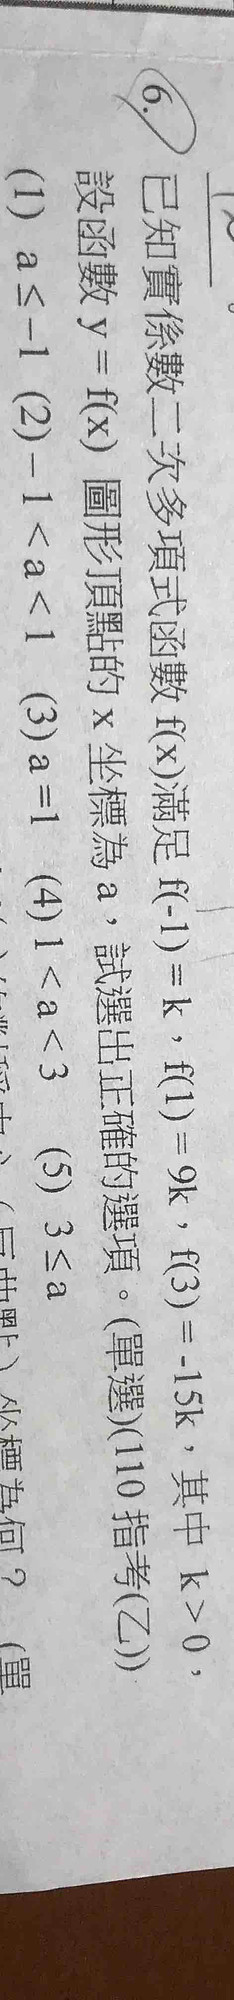 6. 已知實係數二次多項式函數 f(x)滿足 f(-1) = k，f(1) = 9k，f(3) = -15k，其中 k > 0，
設函數 y = f(x) 圖形頂點的 x 坐標為 a，試選出正確的選項。(單選)(110 指考(乙))
(1) a ≤ −1 (2) − 1 < a < 1 (3) a =1 (4) 1 < a < 3 (5) 3 ≤ a
坐標為何？ (單